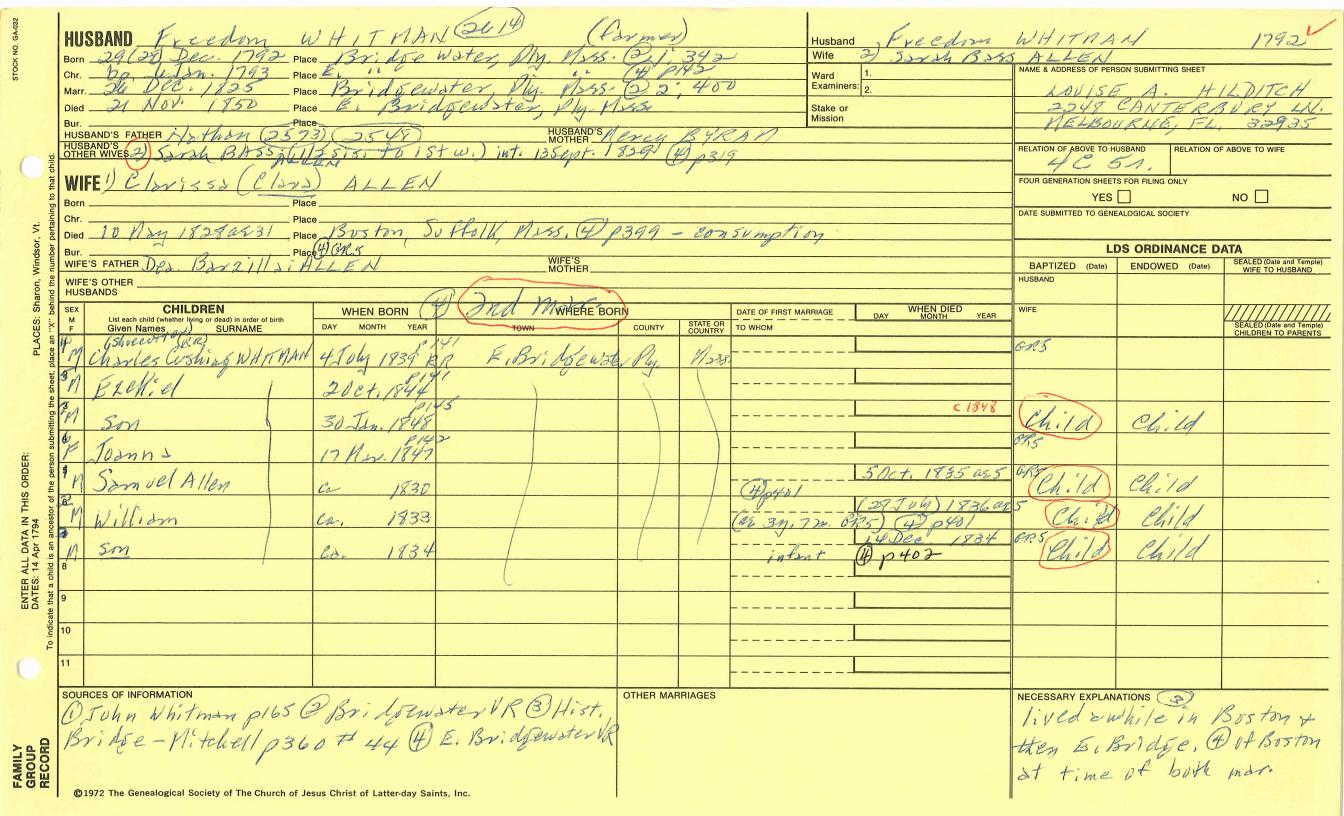 STOCK NO. GA-032
PLACES: Sharon, Windsor, Vt.
ENTER ALL DATA IN THIS ORDER:
DATES: 14 Apr 1794
To indicate that a child is an ancestor of the person submitting the sheet, place an "X" behind the number pertaining to that child.
FAMILY GROUP RECORD
HUSBAND Freedom WHITMAN 2614 (farmer)
Born 29(28) Dec. 1792 Place Bridgewater, Ply. Mass. (2) 1; 342
Chr. bp Jan. 1793 Place E. " " " (4) p142
Marr. 26 Dec. 1825 Place Bridgewater, Ply. Mass. (2) 2; 400
Died 21 Nov. 1850 Place E. Bridgewater, Ply. Mass
Bur. Place
HUSBAND'S FATHER Nathan (2573) (2548) HUSBAND'S MOTHER Mercy BYRAM
HUSBAND'S OTHER WIVES 2) Sarah BASS ALLEN (sis. to 1st w.) int. 13 Sept. 1829 (4) p319
WIFE 1) Clarissa (Clara) ALLEN
Born Place
Chr. Place
Died 10 May 1828 ae 31 Place Boston, Suffolk, Mass. (4) p399 - consumption
Bur. Place (4) GR5
WIFE'S FATHER Dea. Barzillai ALLEN WIFE'S MOTHER
WIFE'S OTHER HUSBANDS
Husband Freedom WHITMAN 1792
Wife 2) Sarah Bass ALLEN
Ward Examiners: 1. 2.
Stake or Mission
NAME & ADDRESS OF PERSON SUBMITTING SHEET
LOUISE A. HILDITCH
2248 CANTERBURY LN.
MELBOURNE, FL. 32935
RELATION OF ABOVE TO HUSBAND RELATION OF ABOVE TO WIFE
4C 5r.
FOUR GENERATION SHEETS FOR FILING ONLY
YES NO
DATE SUBMITTED TO GENEALOGICAL SOCIETY
LDS ORDINANCE DATA
BAPTIZED (Date) ENDOWED (Date) SEALED (Date and Temple) WIFE TO HUSBAND
HUSBAND
WIFE
SEALED (Date and Temple) CHILDREN TO PARENTS
SEX M F
CHILDREN
List each child (whether living or dead) in order of birth
Given Names SURNAME
WHEN BORN (4) 2nd marr. WHERE BORN
DAY MONTH YEAR TOWN COUNTY STATE OR COUNTRY
DATE OF FIRST MARRIAGE
TO WHOM
WHEN DIED
DAY MONTH YEAR
4 M Charles Cushing WHITMAN 4 July 1839 p141 RR E. Bridgewater Ply. Mass. GR5
5 M Ezekiel 2 Oct. 1844 p141
M son 30 Jan. 1848 p145 c 1848 Child Child
6 F Joanna 17 Mar. 1847 p142 GR5
1 M Samuel Allen ca 1830 (4) p401 5 Oct. 1835 ae 5 GR5 Child Child
2 M William ca. 1833 (ae 3y. 7m. GR5) (4) p401 (29 July) 1836 GR5 Child Child
3 M son ca. 1834 infant 14 Dec. 1834 (4) p402 GR5 Child Child
8
9
10
11
SOURCES OF INFORMATION
(1) John Whitman p165 (2) Bridgewater VR (3) Hist.
Bridge - Mitchell p360 # 44 (4) E. Bridgewater VR
OTHER MARRIAGES
NECESSARY EXPLANATIONS (3)
lived awhile in Boston +
then E. Bridge. (4) of Boston
at time of both mar.
©1972 The Genealogical Society of The Church of Jesus Christ of Latter-day Saints, Inc.